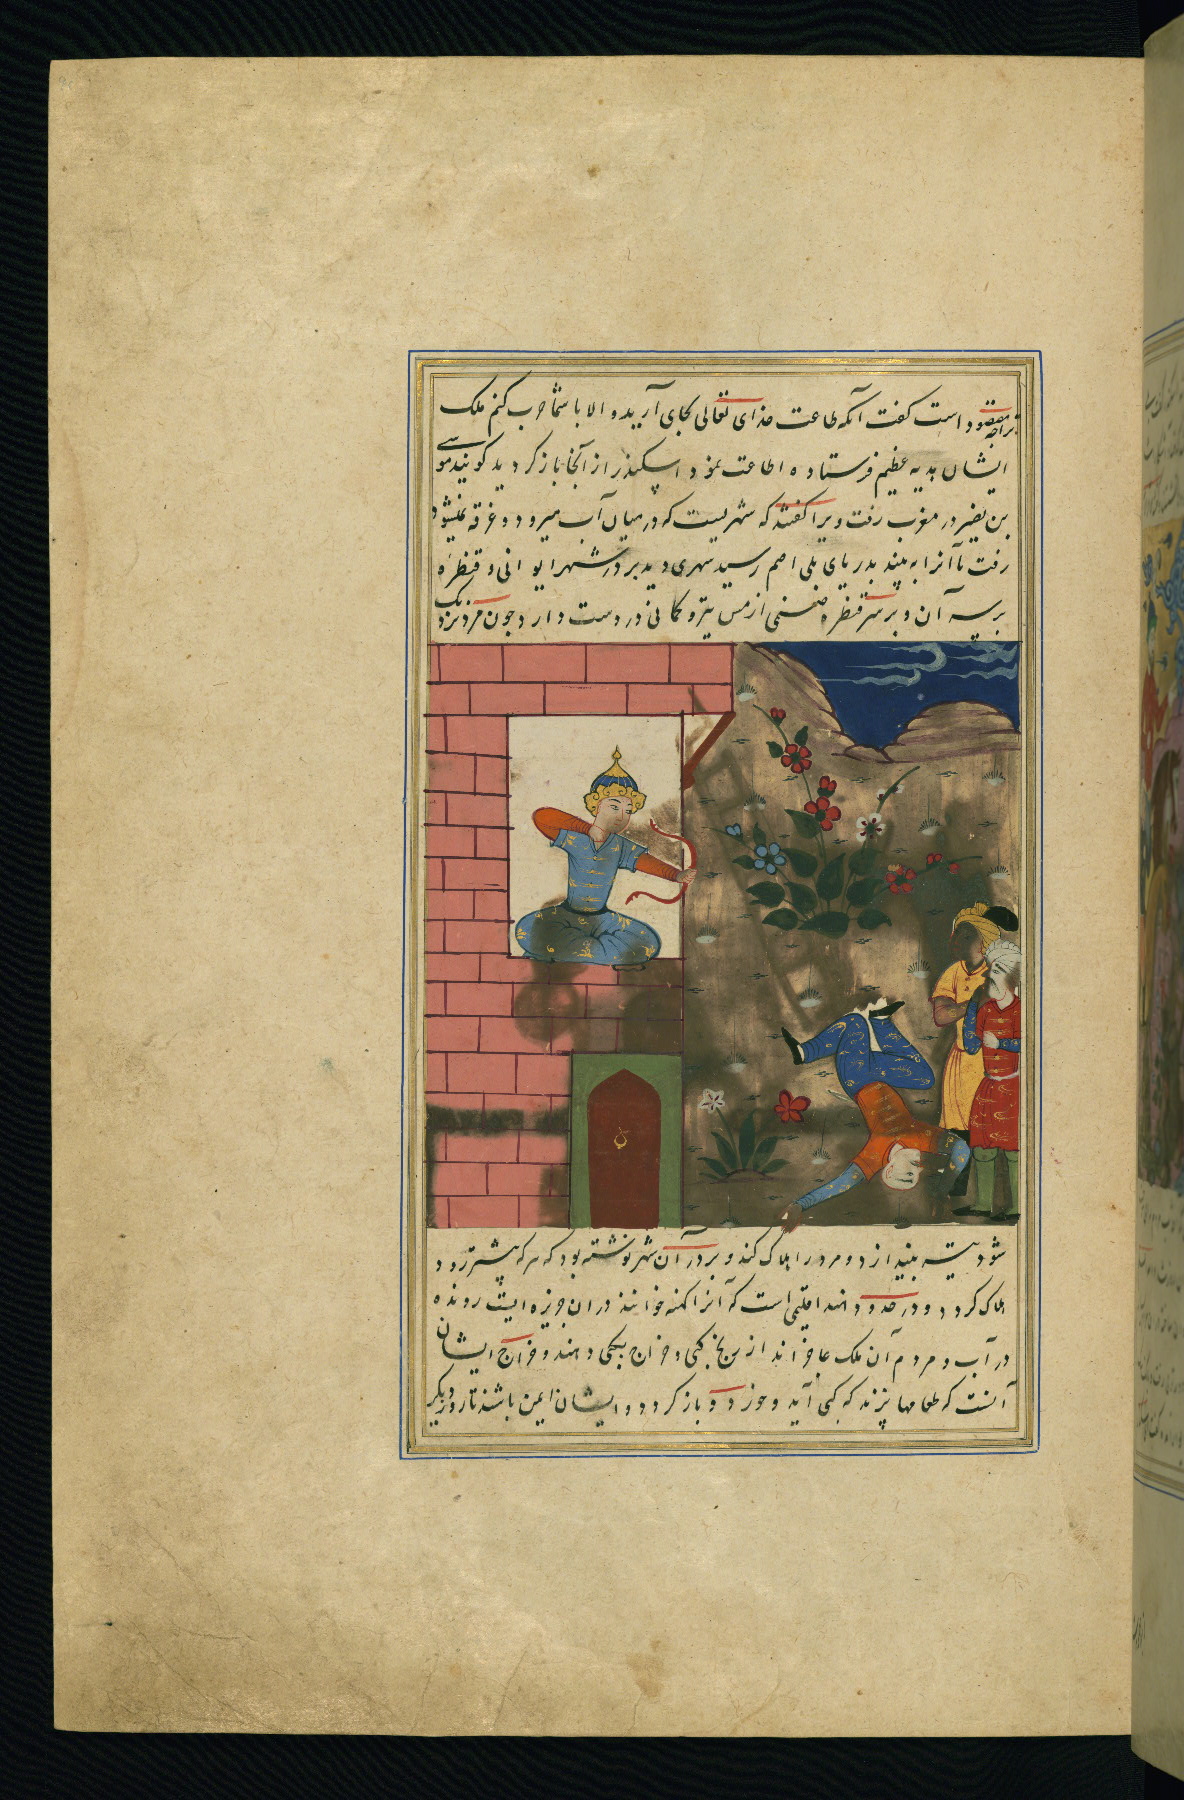 مقصود است گفت آنکه طاعت خدای تعالی بجای آرید و الا با شما حرب کنم ملک
ایشان هدیه عظیم فرستاده اطاعت نمود اسکندر از آنجا باز کردید کویند موسی
بن نصیر در مغرب رفت ویرا گفتند که شهریست که در میان آب میرود و غرقه نمیشود
رفت تا آنرا به بیند بدریای رسید شهری دید بر در شهر ایوانی و قنطره
بر سر آن و بر سر قنطره صنمی از مس تیر و کمانی در دست دارد چون مرد نزدیک
شود تیر بیندازد و مرد را هلاک کند و بر در آن شهر نوشته بود که هر که پیشتر رود
هلاک کردد و در حدود هند اقلیمی است که آنرا خوانند در ان جزیره ایست رونده
در آب و مردم آن ملک عاجزاند از و خراج دهند و خراج ایشان
آنست که طعامها پزند که آید و خورد و باز کردد و ایشان ایمن باشند تا روز دیگر